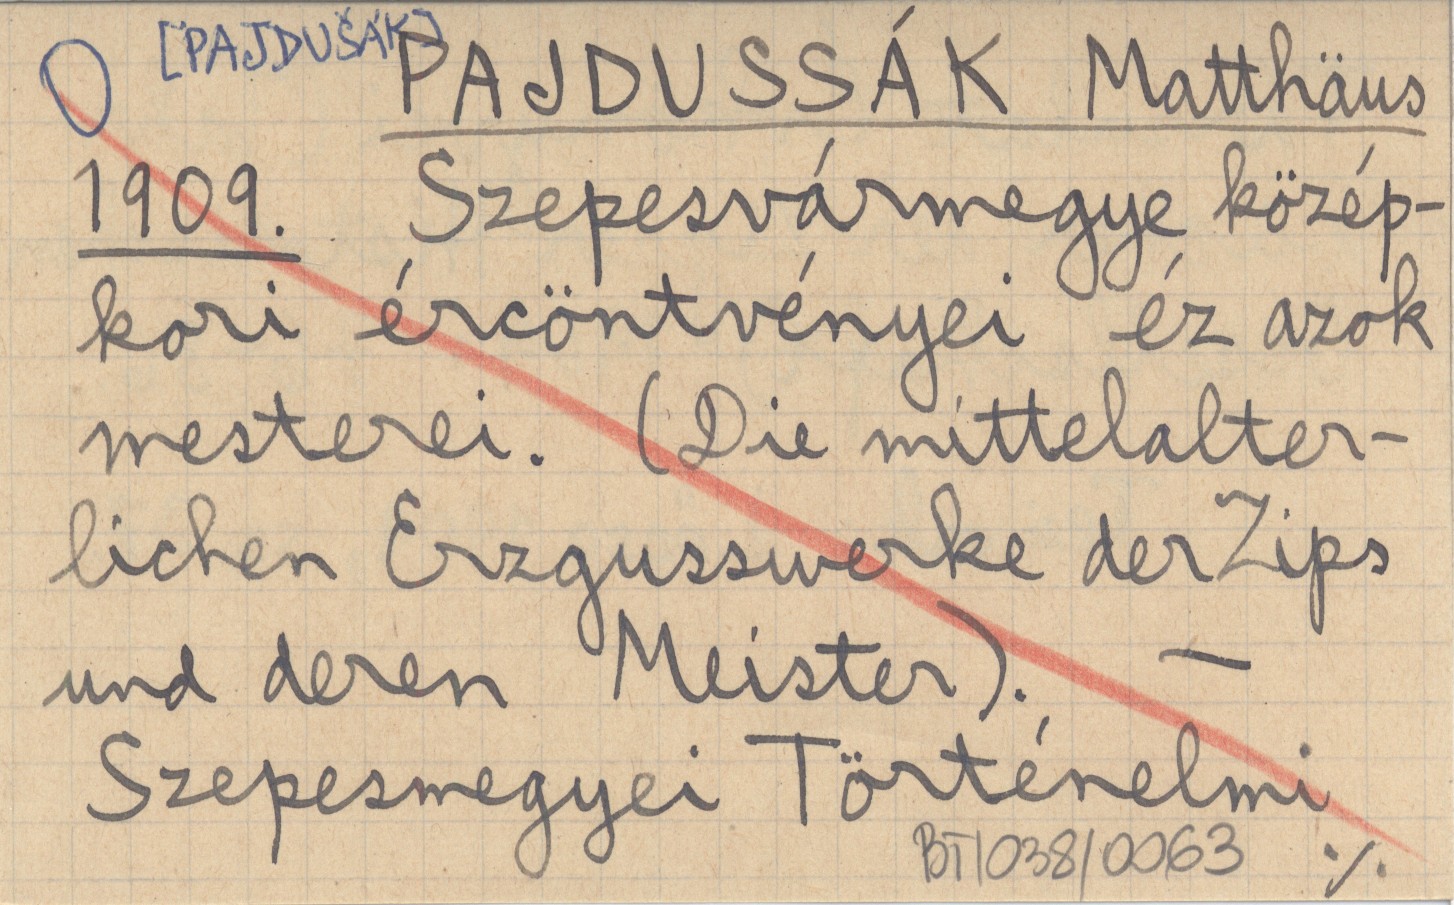 [PAJDUŠÁK]
PAJDUSSÁK Matthäus
1909. Szepesvármegye közép-
kori ércöntvényei éz azok
mesterei. (Die mittelalter-
lichen Erzgusswerke der Zips
und deren Meister). —
Szepesmegyei Történelmi
BT/038/0063 ./.